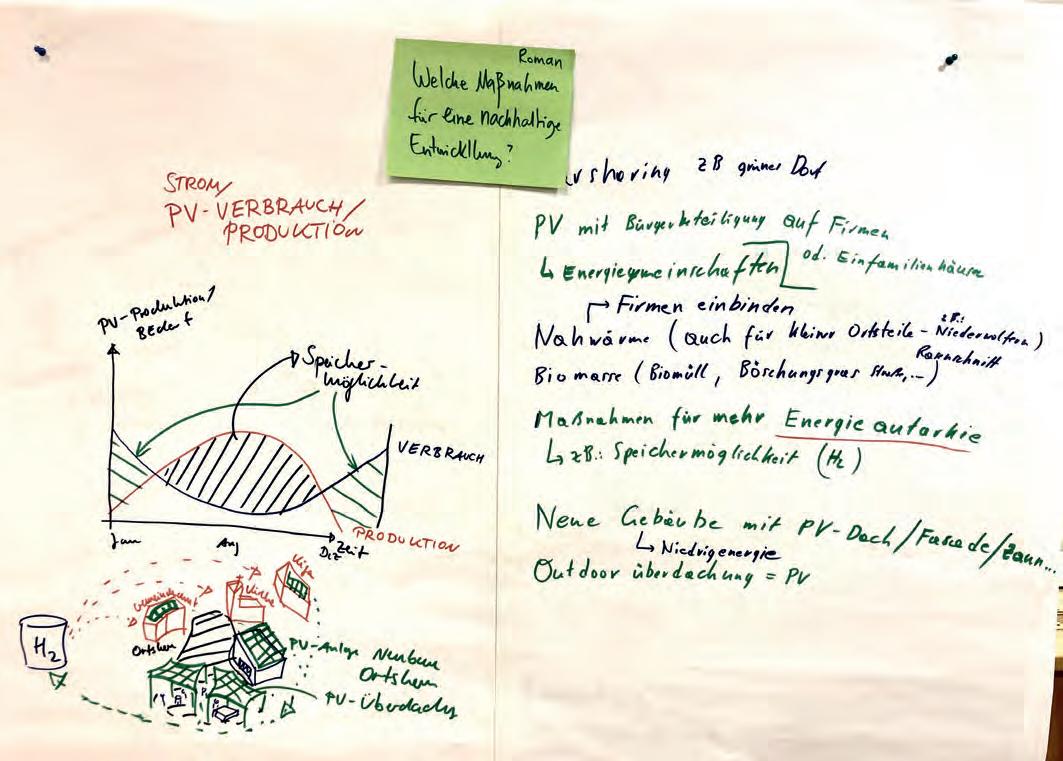 Roman
Welche Maßnahmen
für eine nachhaltige
Entwicklung?
STROM/
PV-VERBRAUCH/
PRODUKTION
PV-Produktion/
BEdarf
Speicher-
möglichkeit
VERBRAUCH
PRODUKTION
Jan
Aug
Dez
Zeit
H2
Gemeindeamt
Kirche
Ortskern
PV-Anlage Neubau
Ortskern
PV-Überdachg
rsharing zB grünes Dorf
PV mit Bürgerbeteiligung auf Firmen
od. Einfamilienhäuser
↳ Energiegemeinschaften
Firmen einbinden
Nahwärme (auch für kleiner Ortsteile - zB.:
Biomasse (Biomüll, Böschungsgras
Maßnahmen für mehr Energieautarkie
↳ zB.: Speichermöglichkeit (H2)
Neue Gebäube mit PV-Dach/Fassade/Zaun...
↳ Niedrigenergie
Outdoor überdachung = PV